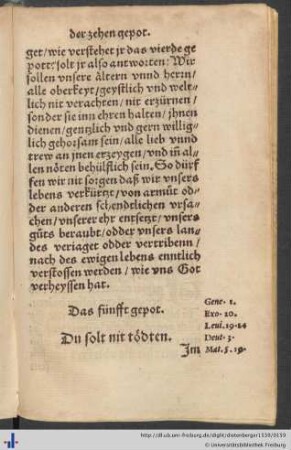 der zehen gepot.
get/wie verstehet jr das vierde ge
pott? solt jr also antworten: Wir
sollen vnsere åltern vnnd herrn/
alle oberkeyt/geystlich vnd welt⸗
lich nit verachten/nit erzürnen/
sonder sie inn ehren halten/jhnen
dienen/gentzlich vnd gern willig⸗
lich gehorsam sein/alle lieb vnnd
trew an jnen erzeygen/vnd in al
len nöten behülflich sein. So dürf
fen wir nit sorgen daß wir vnsers
lebens verkürtzt/von armůt od⸗
der anderen schendtlichen vrsa⸗
chen/vnserer ehr entsetzt/vnsers
gůts beraubt/odder vnsers lan⸗
des veriaget odder vertribenn/
nach des ewigen lebens enntlich
verstossen werden/wie vns Got
verheyssen hat.
Das fünfft gepot.
Du solt nit tödten.
Gene. 1.
Exo. 20.
Leui. 19.24
Deut. 5.
Mat. 5. 19.
Im
http://dl.ub.uni-freiburg.de/diglit/dietenberger1539/0159
© Universitätsbibliothek Freiburg